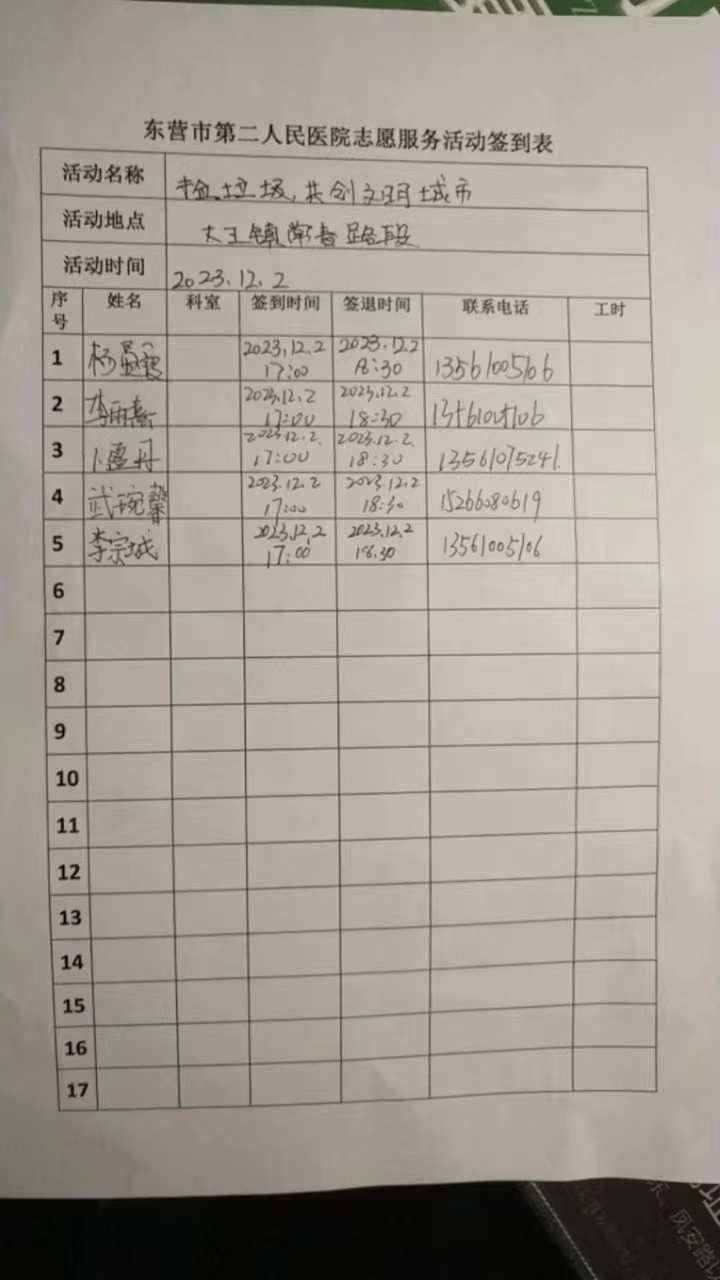 东营市第二人民医院志愿服务活动签到表
活动名称 捡垃圾,共创文明城市
活动地点 大王镇常春路段
活动时间 2023.12.2
序号 姓名 科室 签到时间 签退时间 联系电话 工时
1 杨 2023.12.2 17:00 2023.12.2 18:30 13561005106
2 李雨 2023.12.2 17:00 2023.12.2 18:30 13561005106
3 卜盈丹 2023.12.2 17:00 2023.12.2 18:30 13561075241
4 武琬馨 2023.12.2 17:00 2023.12.2 18:30 15266080619
5 李宗城 2023.12.2 17:00 2023.12.2 18.30 13561005106
6
7
8
9
10
11
12
13
14
15
16
17